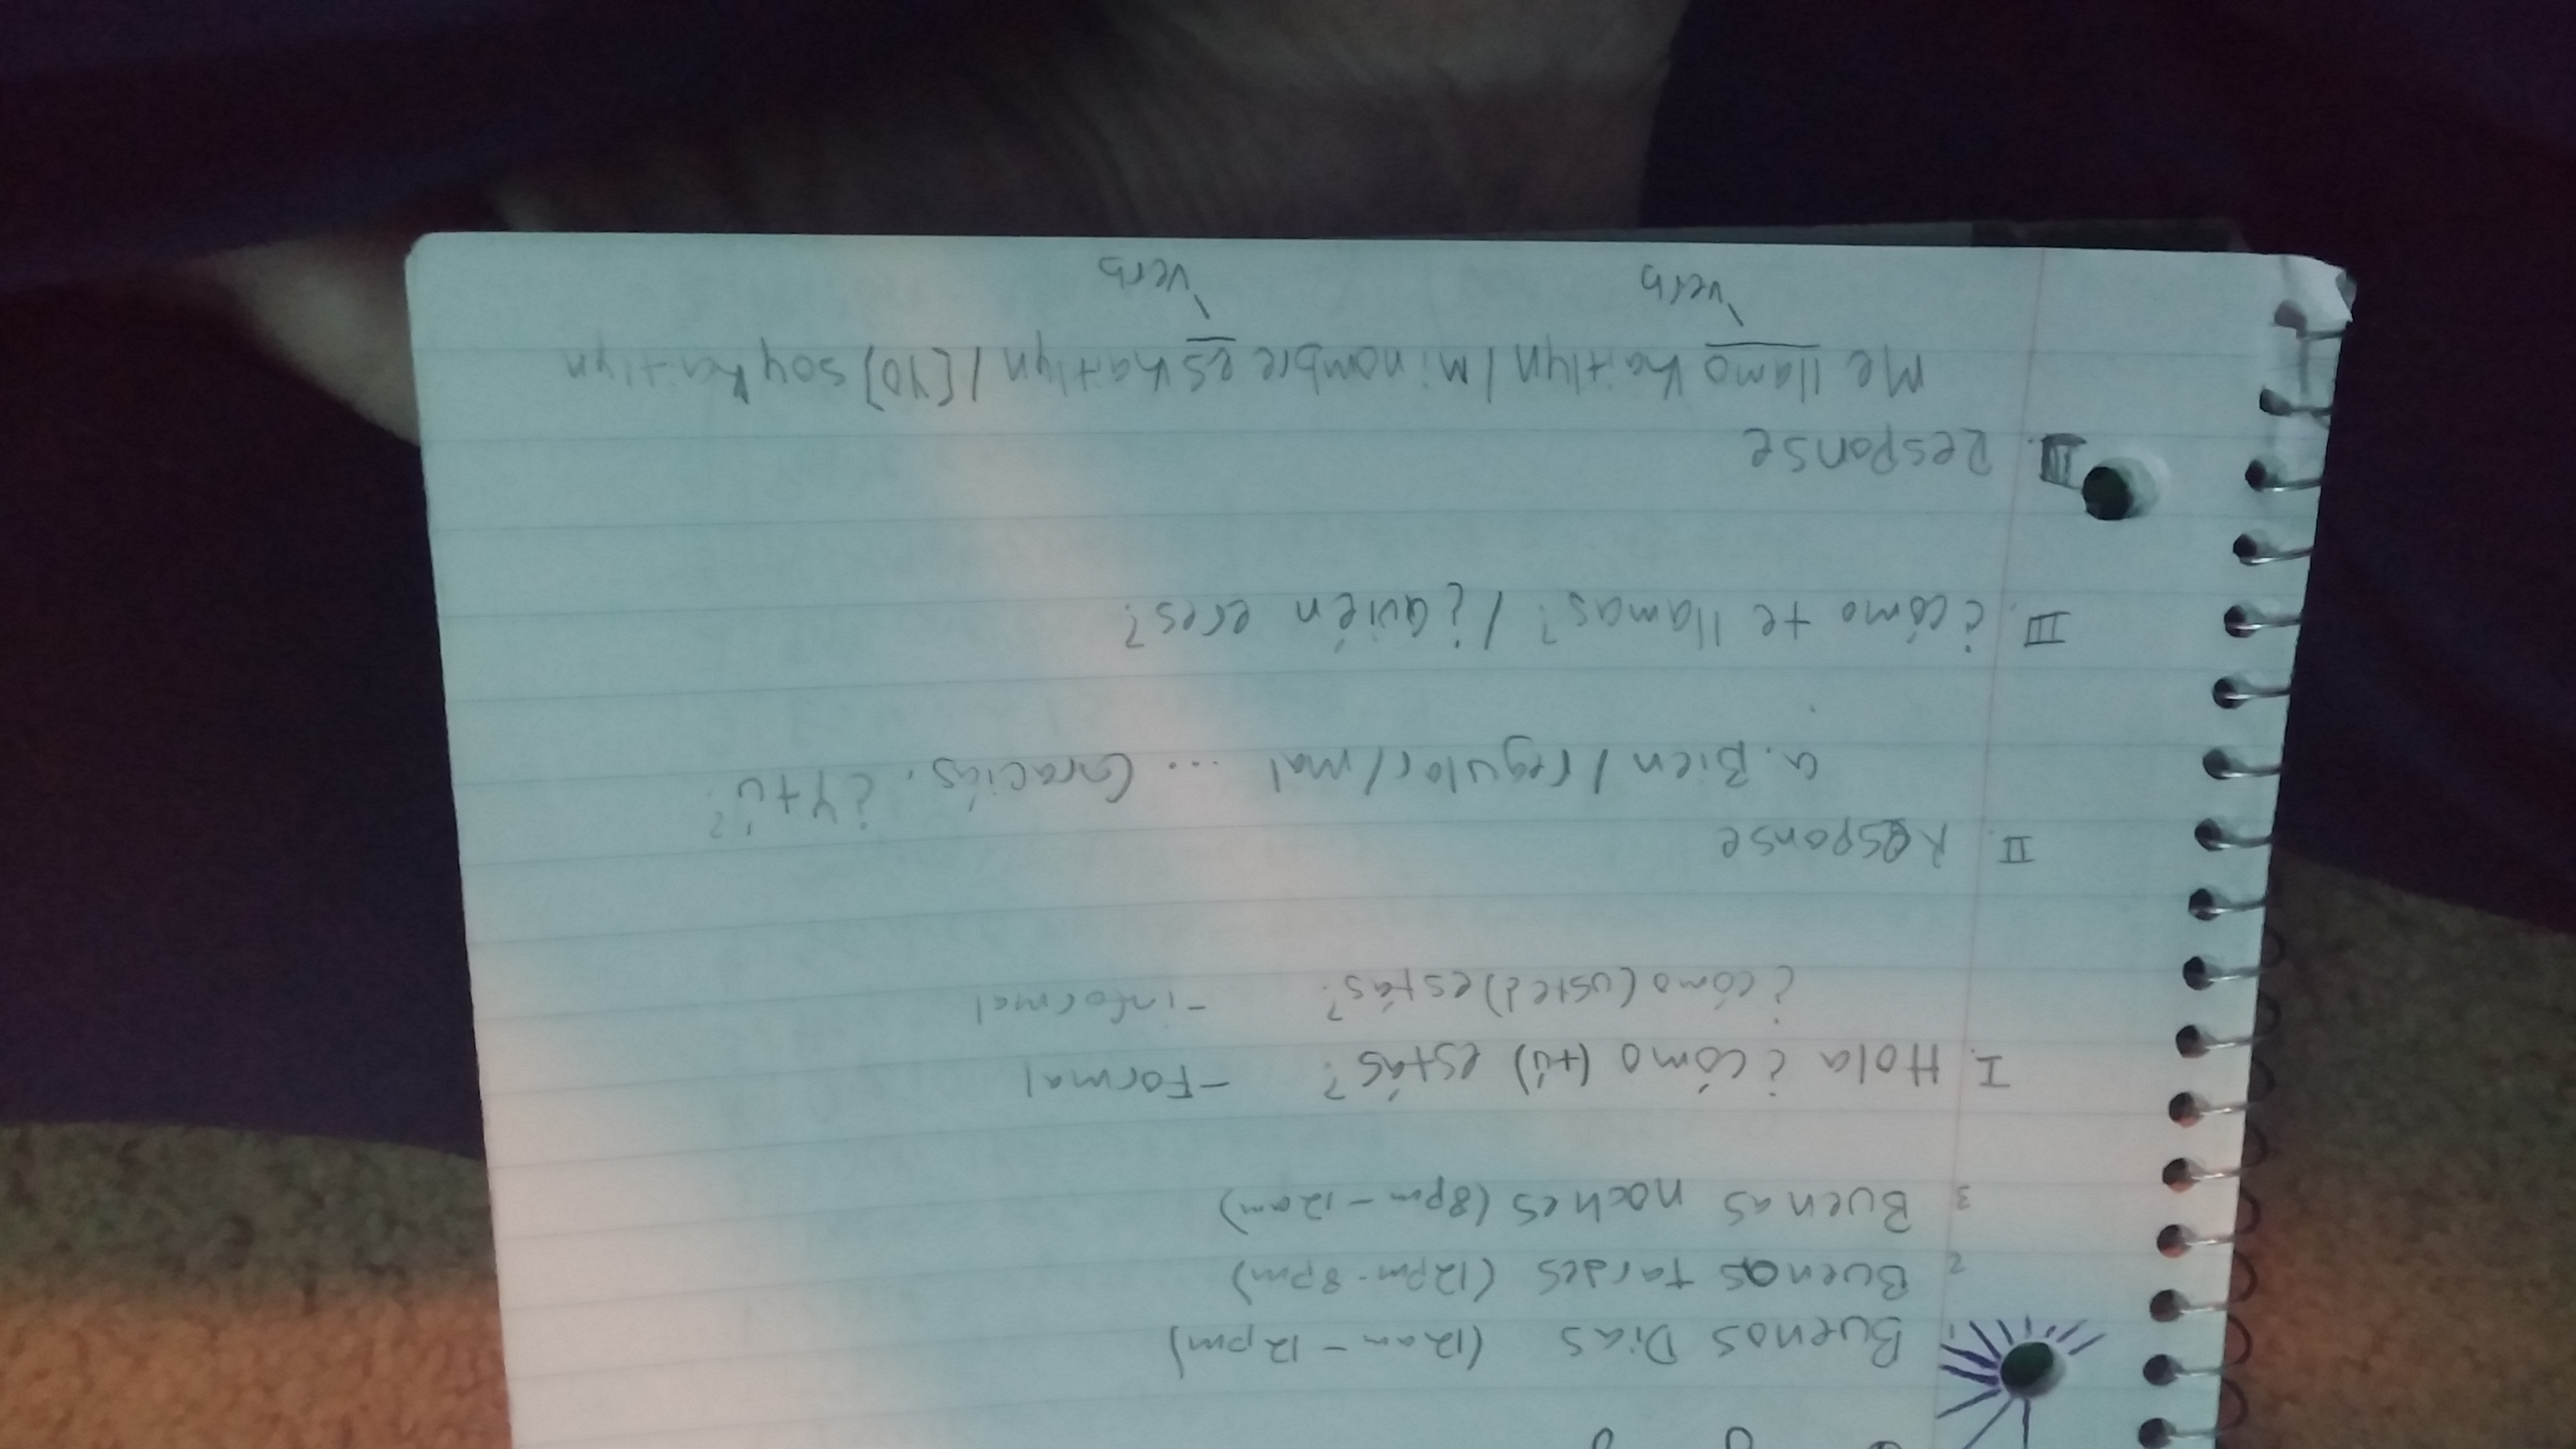 Buenos Dias (12am - 12pm)
2 Buenas tardes (12pm - 8pm)
3 Buenas noches (8pm - 12am)
I. Hola ¿cómo (tú) estás? - Formal
¿cómo (usted) estás? - informal
II. Response
a. Bien / regular / mal ... Gracias. ¿Y tú?
III. ¿cómo te llamas? / ¿Quién eres?
Response
Me llamo Kaitlyn / Mi nombre es Kaitlyn / [YO] soy Kaitlyn
verb verb